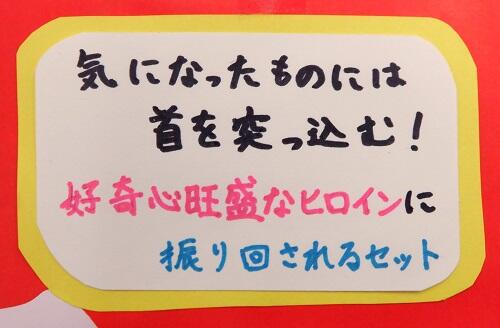 気になったものには
首を突っ込む！
好奇心旺盛なヒロインに
振り回されるセット